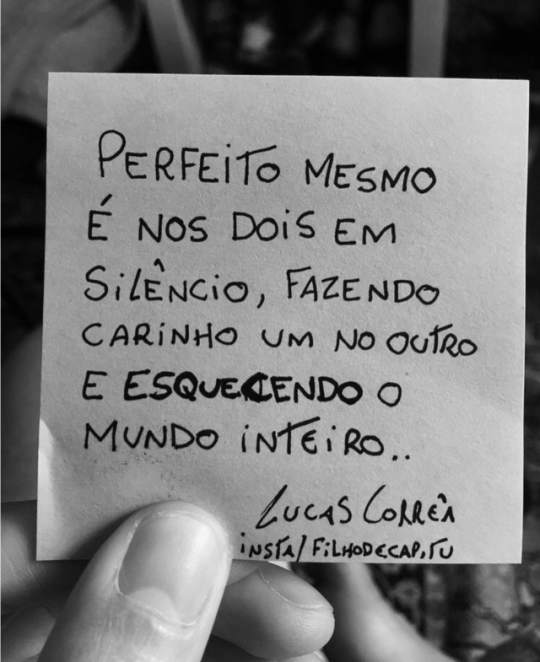 PERFEITO MESMO
É NOS DOIS EM
SILÊNCIO, FAZENDO
CARINHO UM NO OUTRO
E ESQUECENDO O
MUNDO INTEIRO..
LUCAS CORRÊA
INSTA/FILHODECAP.TU